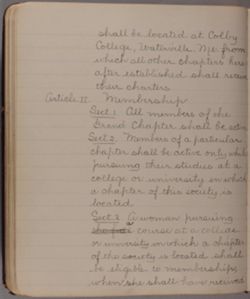 shall be located at Colby
College, Waterville. Me. from
which all other chapters here
after established shall retain
their charters
Article II. Membership
Sect 1. All members of the
Grand Chapter shall be active
Sect 2. Members of a particular
chapter shall be active only while
pursuing their studies at a
college or university in which
a chapter of this society is
located
Sect 3. A woman pursuing
a course at a college
or university in which a chapter
of the society is located shall
be eligible to membership,
when she shall have received